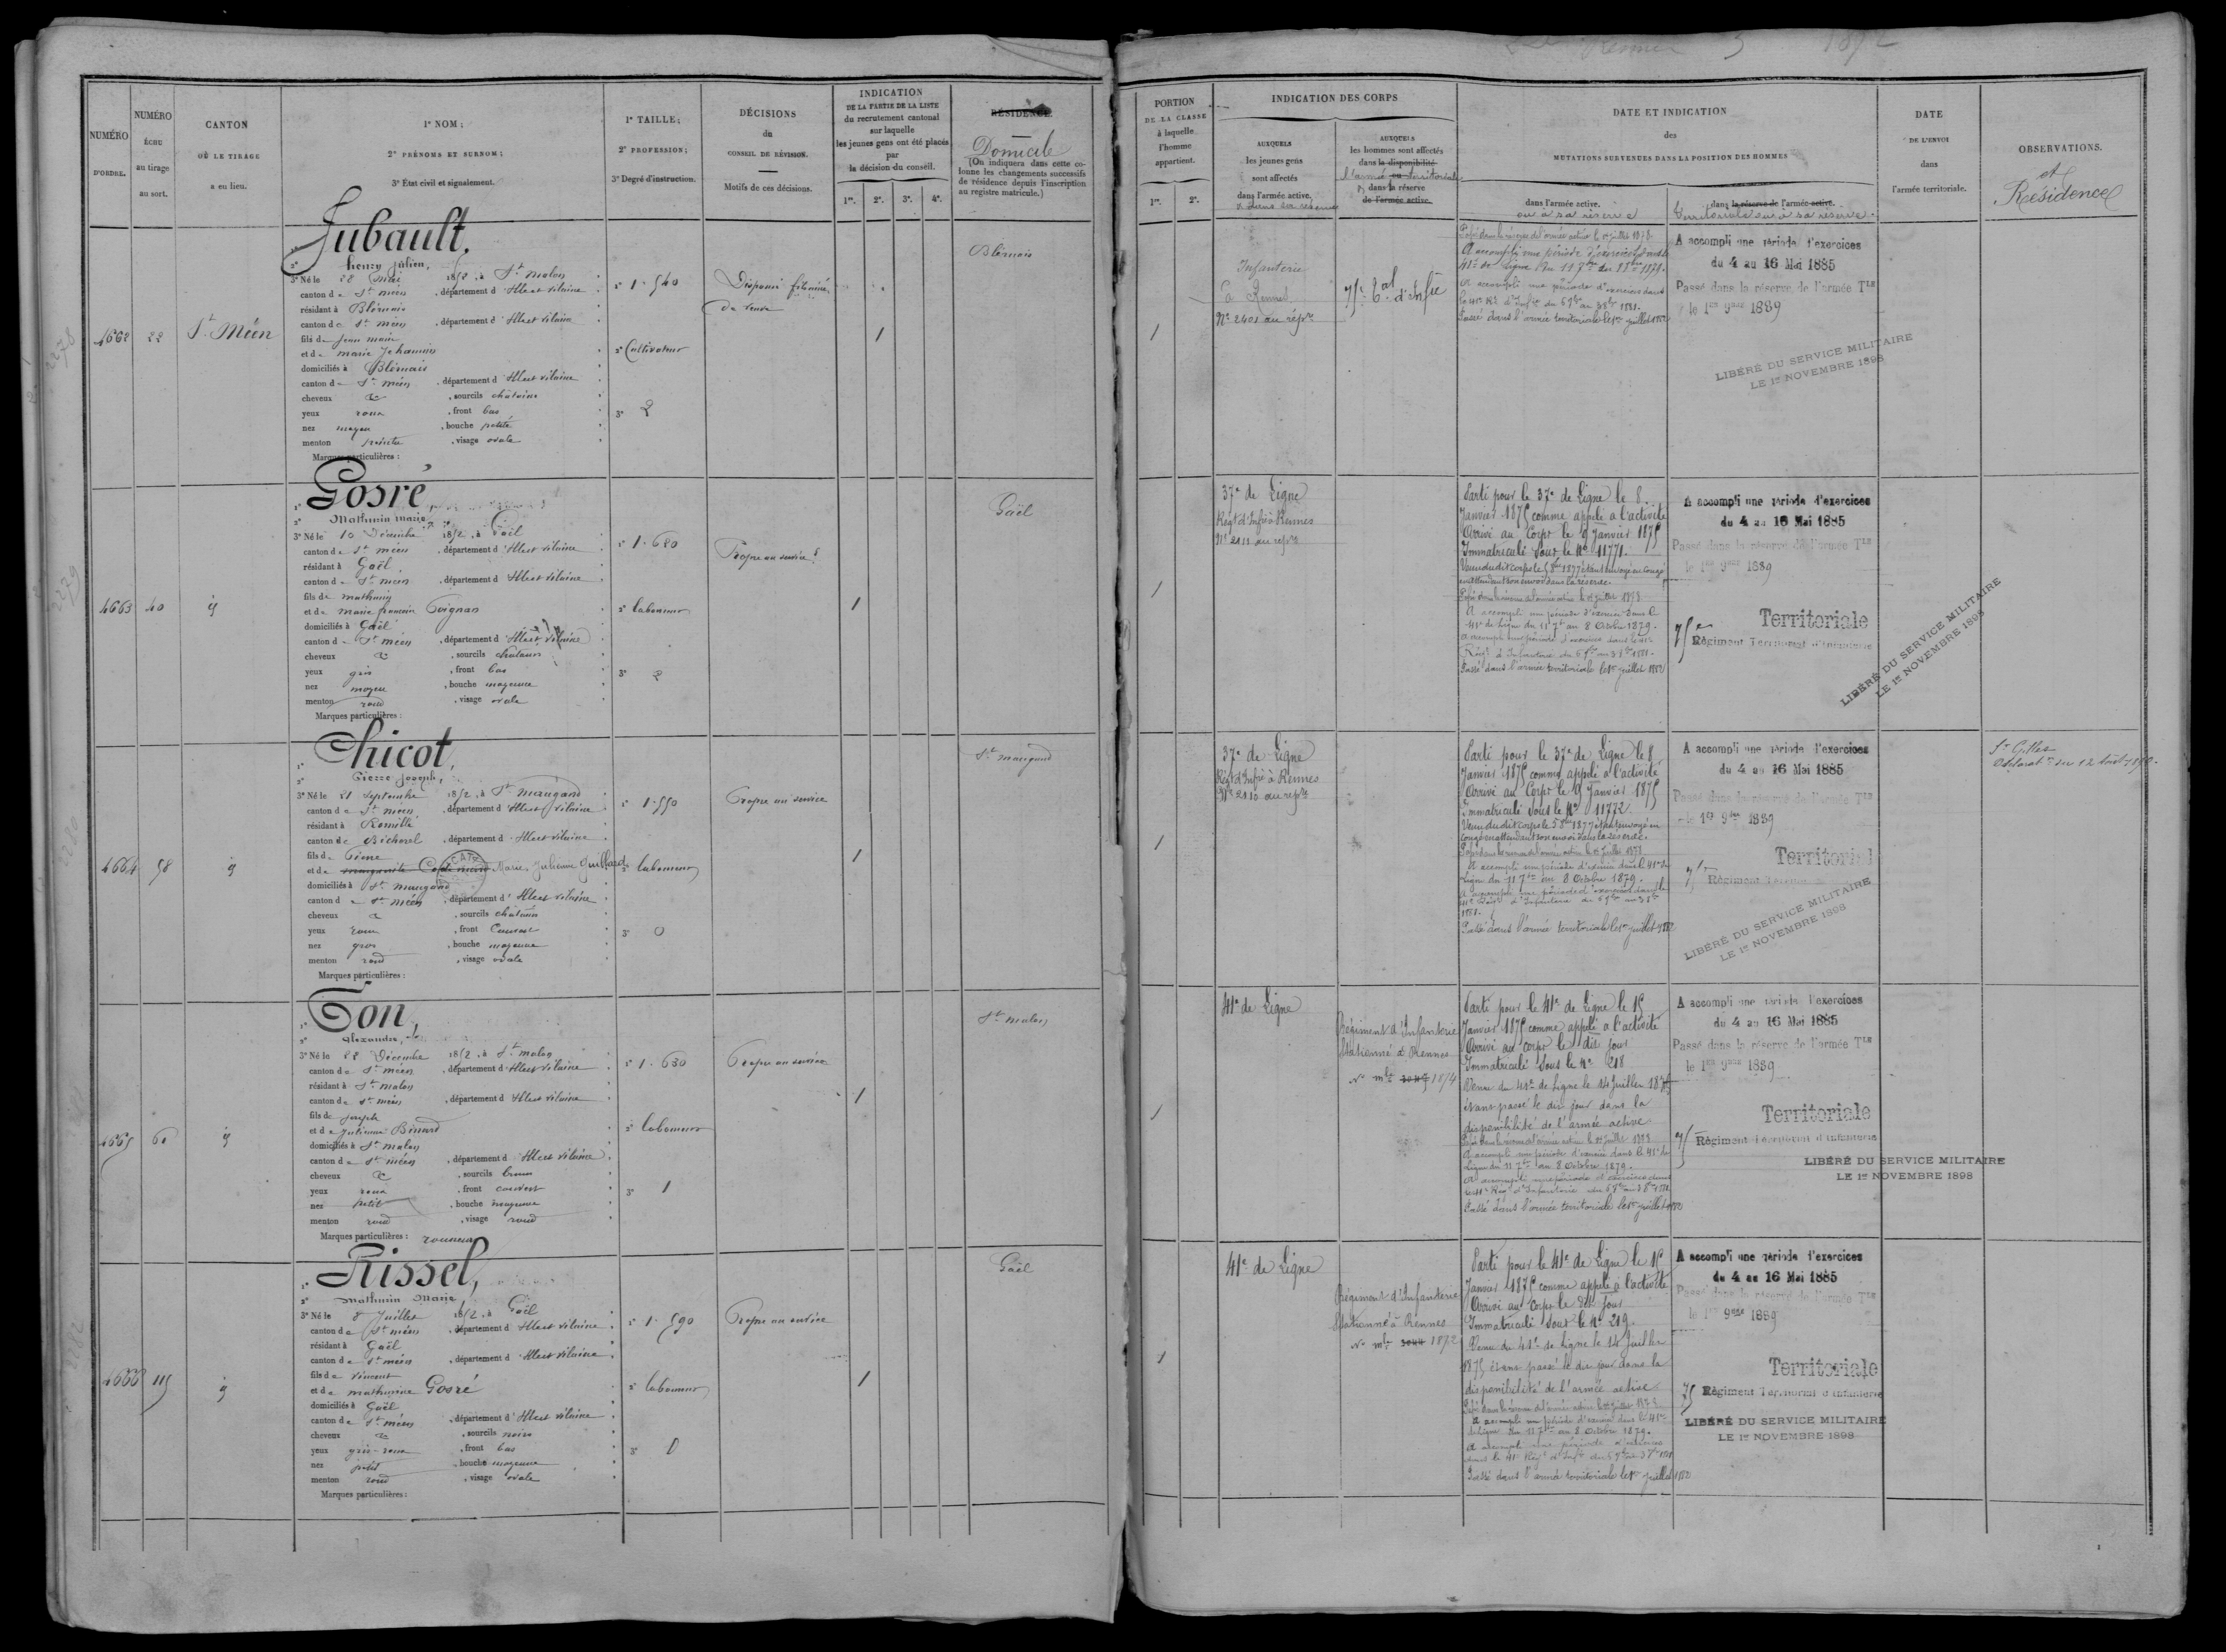 Rennes 5 1872
NUMÉRO
D'ORDRE.
NUMÉRO
ÉCHU
au tirage
au sort.
CANTON
OÙ LE TIRAGE
a eu lieu.
1° NOM;
2° PRÉNOMS ET SURNOM;
3° État civil et signalement.
1° TAILLE;
2° PROFESSION;
3° Degré d'instruction.
DÉCISIONS
du
CONSEIL DE RÉVISION.
Motifs de ces décisions.
INDICATION
DE LA PARTIE DE LA LISTE
du recrutement cantonal
sur laquelle
les jeunes gens ont été placés
par
la décision du conseil.
1re. 2e. 3e. 4e.
RÉSIDENCE.
Domicile
(On indiquera dans cette co-
lonne les changements successifs
de résidence depuis l'inscription
au registre matricule.)
PORTION
DE LA CLASSE
à laquelle
l'homme
appartient.
1re. 2e.
INDICATION DES CORPS
AUXQUELS
les jeunes gens
sont affectés
dans l'armée active.
& dans sa réserve
AUXQUELS
les hommes sont affectés
dans la disponibilité
l'armée ou territoriale
dans la réserve
de l'armée active.
DATE ET INDICATION
des
MUTATIONS SURVENUES DANS LA POSITION DES HOMMES
dans l'armée active.
ou à sa réserve
dans la réserve de l'armée active.
territoriale ou à sa réserve
DATE
DE L'ENVOI
dans
l'armée territoriale.
OBSERVATIONS.
et
Résidence
4662 22 St Méen
Jubault,
2° henry julien,
3° Né le 28 Mai 1852, à St malon
canton de St méen, département d'Ille et vilaine
résidant à Blérnais
canton de St méen, département d'Ille et vilaine
fils de jean marie
et de marie Jehannin
domiciliés à Blérnais
canton de St méen, département d'Ille et vilaine
cheveux &, sourcils châtains
yeux roux, front bas
nez moyen, bouche petite
menton pointu, visage ovale
Marques particulières :
1° 1.540
2° Cultivateur
3° 2
Dispensé fils aîné
de veuve
1
Blérnais
1
Infanterie
à Rennes
N° 2401 au répre
75e Bat d'Infie
Passé dans la réserve de l'armée active le 1er juillet 1878
A accompli une période d'exercices dans le
41e de Ligne du 11 7bre au 8 8bre 1879.
A accompli une période d'exercices dans
le 41e Rt d'Infie du 6 7bre au 3 8bre 1881.
Passé dans l'armée territoriale le 1er juillet 1882
A accompli une période d'exercices
du 4 au 16 Mai 1885
Passé dans la réserve de l'armée Tle
le 1er 9bre 1889
LIBÉRÉ DU SERVICE MILITAIRE
LE 1er NOVEMBRE 1898
4663 40 id
Gosré
2° Mathurin marie
3° Né le 10 Décembre 1852, à Gaël
canton de St méen, département d'Ille et vilaine
résidant à Gaël
canton de St méen, département d'Ille et vilaine
fils de mathurin
et de marie francoise Poignan
domiciliés à Gaël
canton de St méen, département d'Ille et vilaine
cheveux &, sourcils châtains
yeux gris, front bas
nez moyen, bouche moyenne
menton rond, visage ovale
Marques particulières :
1° 1.620
2° laboureur
3° 2
Propre au service
1
Gaël
1
37e de Ligne
Régt d'Infie à Rennes
N° 2411 au répre
Parti pour le 37e de Ligne le 8
Janvier 1875 comme appelé à l'activité
Arrivé au Corps le 9 Janvier 1875
Immatriculé sous le N° 11771.
Venu du dit corps le 5 8bre 1877 étant envoyé en Congé
en attendant son envoi dans la réserve.
Passé dans la réserve de l'armée active le 1er juillet 1878
A accompli une période d'exercices dans le
41e de Ligne du 11 7bre au 8 Octobre 1879.
A accompli une période d'exercices dans le 41e
Régt d'Infanterie du 6 7bre au 3 8bre 1881.
Passé dans l'armée territoriale le 1er juillet 1882
A accompli une période d'exercices
du 4 au 16 Mai 1885
Passé dans la réserve de l'armée Tle
le 1er 9bre 1889
Territoriale
75e Régiment Territorial d'Infanterie
LIBÉRÉ DU SERVICE MILITAIRE
LE 1er NOVEMBRE 1898
4664 58 id
Chicot,
2° Pierre Joseph,
3° Né le 21 Septembre 1852, à St maugand
canton de St méen, département d'Ille et vilaine
résidant à Romillé
canton de Bécherel, département d'Ille et vilaine
fils de Pierre
et de Marie Julienne Guillard
domiciliés à St maugand
canton de St méen, département d'Ille et vilaine
cheveux &, sourcils châtains
yeux roux, front Couvert
nez gros, bouche moyenne
menton rond, visage ovale
Marques particulières :
1° 1.550
2° laboureur
3° 0
Propre au service
1
St maugand
1
37e de Ligne
Régt d'Infie à Rennes
N° 2410 au répre
Parti pour le 37e de Ligne le 8
Janvier 1875 comme appelé à l'activité
Arrivé au Corps le 9 Janvier 1875
Immatriculé sous le N° 11772.
Venu du dit corps le 5 8bre 1877 étant envoyé en
congé en attendant son envoi dans la réserve.
Passé dans la réserve de l'armée active le 1er juillet 1878
A accompli une période d'exercices dans le 41e de
Ligne du 11 7bre au 8 Octobre 1879.
A accompli une période d'exercices dans le
41e Régt d'Infanterie du 6 7bre au 3 8bre
1881.
Passé dans l'armée territoriale le 1er juillet 1882
A accompli une période d'exercices
du 4 au 16 Mai 1885
Passé dans la réserve de l'armée Tle
le 1er 9bre 1889
Territorial
75e Régiment
LIBÉRÉ DU SERVICE MILITAIRE
LE 1er NOVEMBRE 1898
St Gilles
4665 60 id
Ton,
2° Alexandre,
3° Né le 28 Décembre 1852, à St malon
canton de St méen, département d'Ille et vilaine
résidant à St malon
canton de St méen, département d'Ille et vilaine
fils de joseph
et de julienne Binard
domiciliés à St malon
canton de St méen, département d'Ille et vilaine
cheveux &, sourcils bruns
yeux roux, front couvert
nez petit, bouche moyenne
menton rond, visage rond
Marques particulières : rousseurs
1° 1.630
2° laboureur
3° 1
Propre au service
1
St malon
1
41e de Ligne
Régiment d'Infanterie
Stationné à Rennes
N° mle 1874
Parti pour le 41e de Ligne le 15
Janvier 1875 comme appelé à l'activité
Arrivé au Corps le dit jour
Immatriculé sous le N° 218
Venu du 41e de Ligne le 24 Juillet 1875
étant passé le dit jour dans la
disponibilité de l'armée active
Passé dans la réserve de l'armée active le 1er juillet 1878
A accompli une période d'exercices dans le 41e de
Ligne du 11 7bre au 8 Octobre 1879.
A accompli une période d'exercices dans
le 41e Régt d'Infanterie du 6 7bre au 3 8bre 1881
Passé dans l'armée territoriale le 1er juillet 1882
A accompli une période d'exercices
du 4 au 16 Mai 1885
Passé dans la réserve de l'armée Tle
le 1er 9bre 1889
Territoriale
75 Régiment Territorial d'Infanterie
LIBÉRÉ DU SERVICE MILITAIRE
LE 1er NOVEMBRE 1898
4666 115 id
Rissel,
2° Mathurin Marie,
3° Né le 8 Juillet 1852, à Gaël
canton de St méen, département d'Ille et vilaine
résidant à Gaël
canton de St méen, département d'Ille et vilaine
fils de vincent
et de mathurine Gosré
domiciliés à Gaël
canton de St méen, département d'Ille et vilaine
cheveux &, sourcils noirs
yeux gris-roux, front bas
nez petit, bouche moyenne
menton rond, visage ovale
Marques particulières :
1° 1.590
2° laboureur
3° 0
Propre au service
1
Gaël
1
41e de Ligne
Régiment d'Infanterie
Stationné à Rennes
N° mle 1872
Parti pour le 41e de Ligne le 15
Janvier 1875 comme appelé à l'activité
Arrivé au Corps le dit jour
Immatriculé sous le N° 219.
Venu du 41e de Ligne le 24 Juillet
1875 étant passé le dit jour dans la
disponibilité de l'armée active
Passé dans la réserve de l'armée active le 1er juillet 1878
A accompli une période d'exercices dans le 41e
de Ligne du 11 7bre au 8 Octobre 1879.
A accompli une période d'exercices
dans le 41e Régt d'Infie du 6 7bre au 3 8bre 1881
Passé dans l'armée territoriale le 1er juillet 1882
A accompli une période d'exercices
du 4 au 16 Mai 1885
Passé dans la réserve de l'armée Tle
le 1er 9bre 1889
Territoriale
75 Régiment Territorial d'Infanterie
LIBÉRÉ DU SERVICE MILITAIRE
LE 1er NOVEMBRE 1898